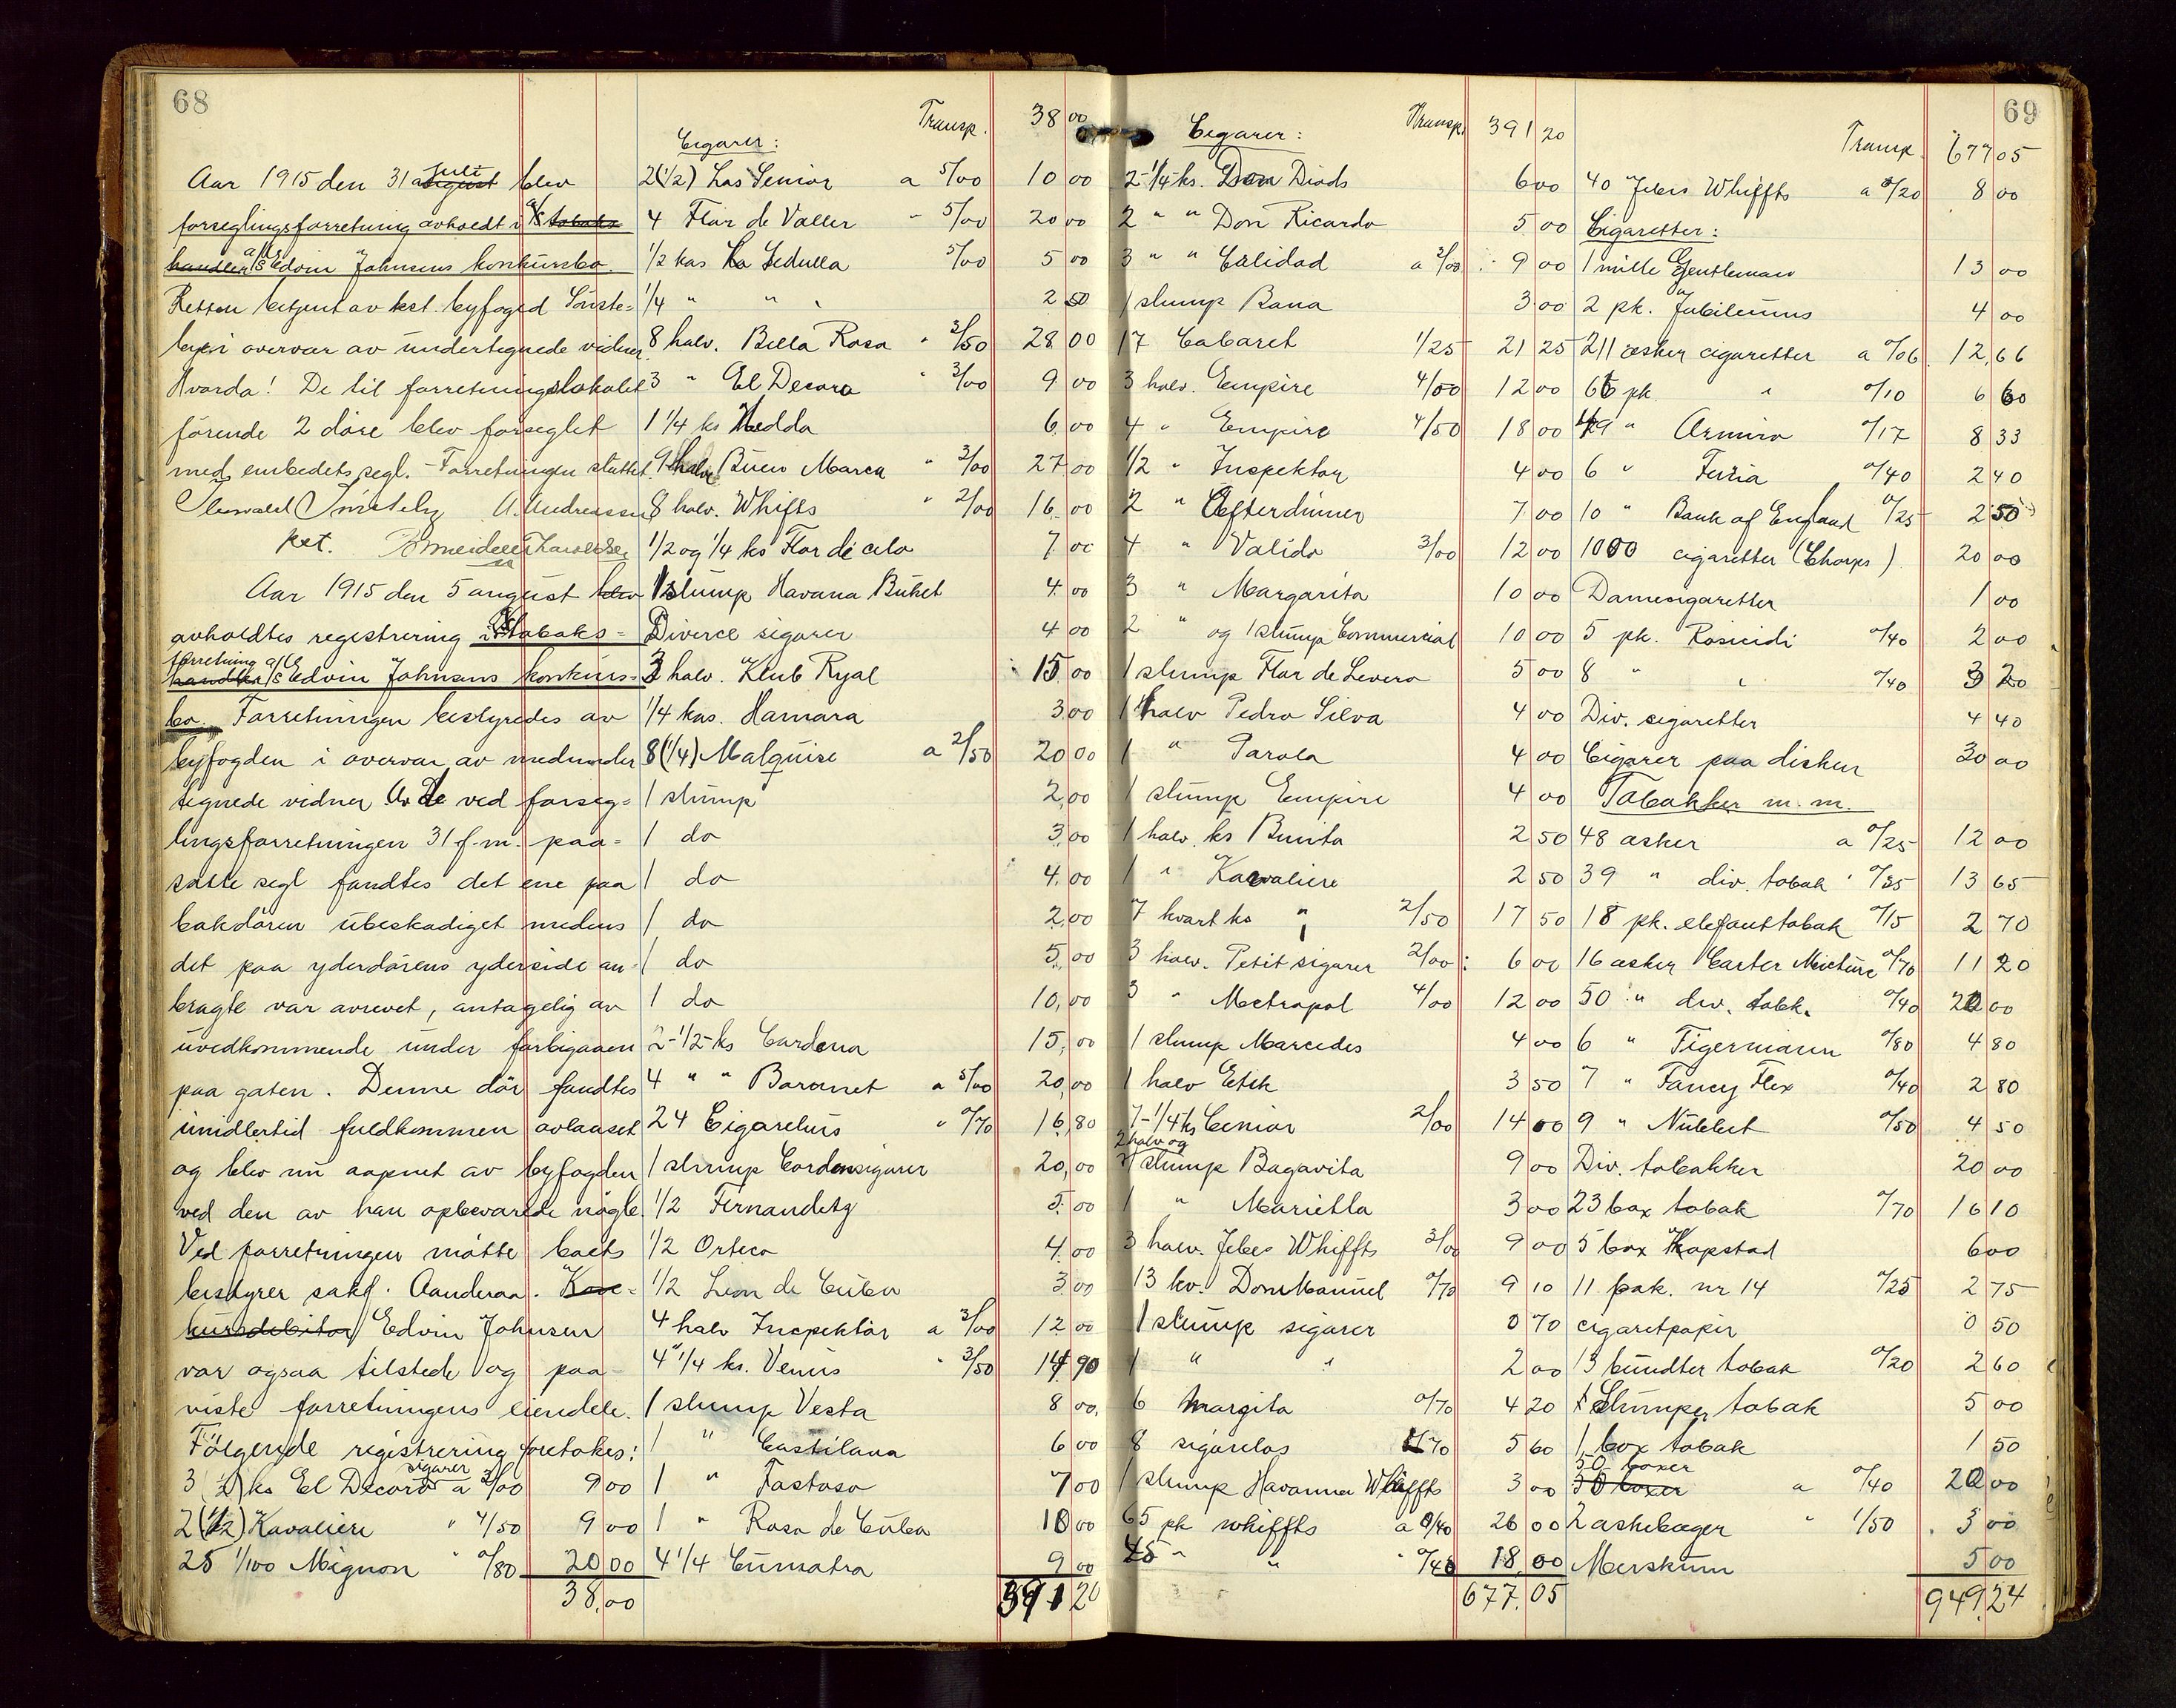 68
Aar 1915 den 31 august juli blev
forseglingsforretning avholdt i A/S tobaks-
handler A/S Edvin Johnsens konkursbo.
Retten betjent av kst. byfoged Smste-
by i overvær av undertegnede vidner.
Hvorda! De til forretningslokalet
førende 2 døre blev forseglet
med embedets segl. - Forretningen sluttet.
A. Andreassen
kst.
Aar 1915 den 5 august blev
avholdtes registrering i A/S tobaks-
forretning
handler A/S Edvin Johnsens konkurs-
bo. Forretningen bestyredes av
byfogden i overvær av medunder
tegnede vidner. Av De ved forseg-
lingsforretningen 31 f.m. paa-
satte segl fandtes det ene paa
bakdøren ubeskadiget medens
det paa yderdørens yderside an-
bragte var avrevet, antagelig av
uvedkommende under forbigaaen
paa gaten. Denne dør fandtes
imidlertid fuldkommen avlaaset
og blev nu aapnet av byfogden
ved den av han opbevarede nøgle.
Ved forretningen møtte boets
bestyrer sakf. Aanderaa. Kon-
kursdebitor Edvin Johnsen
var ogsaa tilstede og paa-
viste forretningens eiendele.
Følgende registrering foretokes:
sigarer
3 (1/2) ks El Decoro a 3/00 9 00
2 (1/2) Kavaliere " 4/50 9 00
25 1/100 Mignon " 0/80 20 00
38,00
Transp. 38 00
Cigarer:
2 (1/2) Las Senior a 5/00 10 00
4 Flor de Valler " 5/00 20 00
1/2 kas La Sedulla 5/00 5 00
1/4 " " " 2 50
8 halv. Bella Rosa " 3/50 28 00
3 " El Decoro " 3/00 9 00
1 1/4 ks Hedda 6 00
9 halv Buen Marca " 3/00 27 00
8 halv. Whifts " 2/00 16 00
1/2 og 1/4 ks Flor de celo 7 00
1 slump Havana Buket 4 00
Diverce sigarer 4 00
3 halv. Klub Ryal 15 00
1/4 kas. Hamara 3 00
8 (1/4) Malquise a 2/50 20 00
1 slump 2,00
1 do 3,00
1 do 4,00
1 do 2,00
1 do 5,00
1 do 10,00
2-1/2-ks Cardena 15,00
4 " " Baronet a 5/00 20,00
24 Cigarelius " 0/70 16,80
1 slump Cordensigarer 20,00
1/2 Fernandetz 5 00
1/2 Orteco 4 00
1/2 Leon de Cuba 3 00
4 halv Inspektør a 3/00 12 00
4 1/4 ks. Venus " 3/50 14 90
1 slump Vesta 8 00
1 " Castilana 6 00
1 " Fastoso 7 00
1 " Rosa de Cuba 10 00
4 1/4 Cumatra 9 00
391 20
69
Cigarer: Transp. 391 20
2-1/4-ks. Don Diods 6 00
2 " " Don Ricardo 5 00
3 " " Calidad a 3/00 9 00
1 slump Bana 3 00
17 Cabaret 1/25 21 25
3 halv. Empire 4/00 12 00
4 " Empire 4/50 18 00
1/2 " Inspektor 4 00
2 " Afterdinner 7 00
4 " Valido 3/00 12 00
3 " Margarita 10 00
2 " og 1 slump Commercial 10 00
1 slump Flor de Levero 5 00
1 halv Pedro Silva 4 00
1 " Parola 4 00
1 slump Empire 4 00
1 halv. ks Bunita 2 50
1 " Kavaliere 2 50
7 kvart ks " 2/50 17 50
3 halv. Petit sigarer 2/00 6 00
3 " Metropol 4/00 12 00
1 slump Marcedes 4 00
1 halv Etik 3 50
7-1/4-ks Cenior 2/00 14 00
2 halv og
1 slump Bagavita 9 00
1 " Marietta 3 00
3 halv. Jebes Whiffts 3/00 9 00
13 kv. Don Manuel 0/70 9 10
1 slump sigarer 0 70
1 " " 2 00
6 Margita 0/70 4 20
8 sigarelos 0/70 5 60
1 slump Havanna Whiffts 3 00
65 pk whiffts a 0/40 26 00
45 " " " 0/40 18,00
677,05
Transp. 677 05
40 Jebes Whiffts a 0/20 8 00
Cigaretter:
1 mille Gentleman 13 00
2 pk. Jubileums 4 00
211 æsker cigaretter a 0/06 12,66
66 pk. " 0/10 6 60
49 " Armiro 0/17 8 33
6 " Furia 0/40 2 40
10 " Bank of England 0/25 2 50
1000 cigaretter (Chorps) 20 00
Damecigaretter 1 00
5 pk. Rosicidi 0/40 2 00
8 " " 0/40 3 20
Div. sigaretter 4 40
Cigarer paa disken 30 00
Tobakker m.m.
48 æsker a 0/25 12 00
39 " div. tobak " 0/35 13 65
18 pk. elefanttobak 0/15 2 70
16 æsker Carter Mixture 0/70 11 20
50 " div. tobk. 0/40 20 00
6 " Tigermann 0/80 4 80
7 " Fancy Flex 0/40 2 80
9 " Nubbet 0/50 4 50
Div. tobakker 20 00
23 box tobak 0/70 16 10
5 box Kapstad 6 00
11 pak. nr 14 0/25 2 75
cigaretpapir 0 50
13 bundter tobak 0/20 2 60
Slumper tobak 5 00
1 box tobak 1 50
50 boxer
50 boxer a 0/40 20 00
2 askebæger " 1/50 3 00
Merskum 5 00
949,24